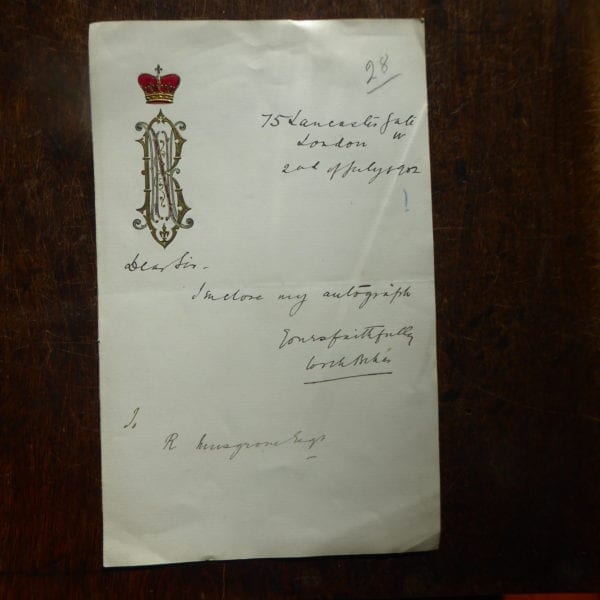 28
75 Lancaster Gate
London W
2nd of July 1902
Dear Sir -
I enclose my autograph
Yours faithfully
To
R Musgrove Esqr